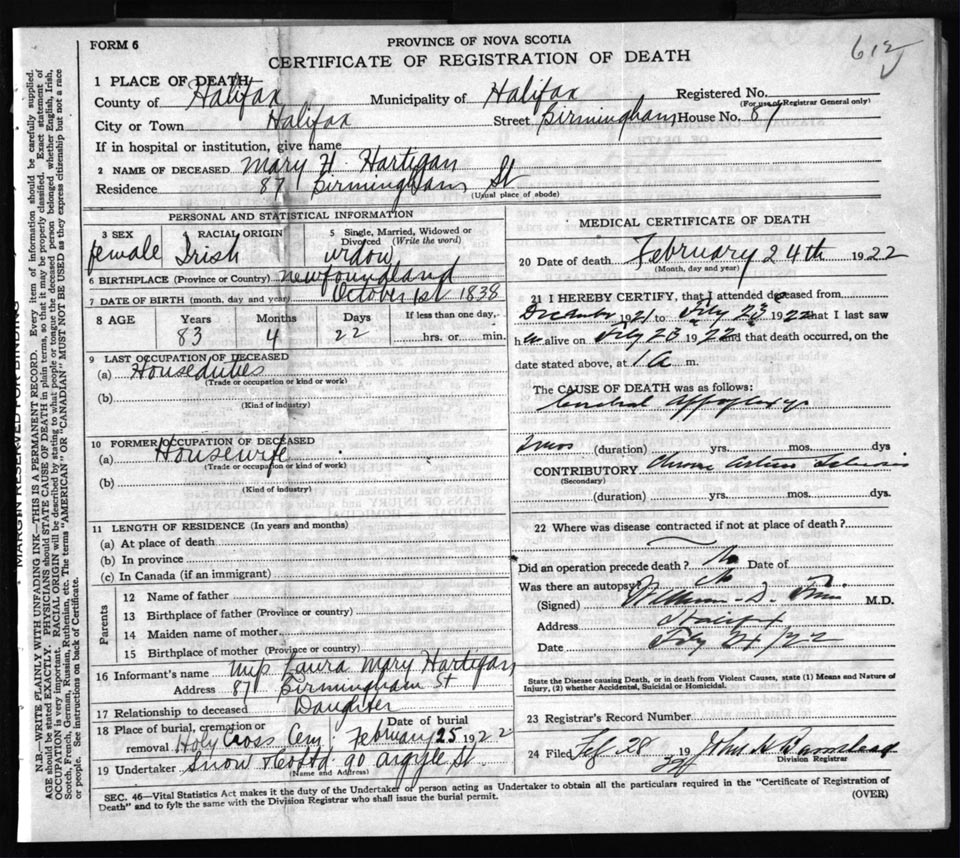 612
FORM 6
PROVINCE OF NOVA SCOTIA
CERTIFICATE OF REGISTRATION OF DEATH
1 PLACE OF DEATH
County of Halifax Municipality of Halifax Registered No.
(For use of Registrar General only)
City or Town Halifax Street Birmingham House No. 87
If in hospital or institution, give name
2 NAME OF DECEASED Mary H. Hartigan
Residence 87 Birmingham St
(Usual place of abode)
PERSONAL AND STATISTICAL INFORMATION
3 SEX RACIAL ORIGIN 5 Single, Married, Widowed or Divorced (Write the word)
female Irish widow
6 BIRTHPLACE (Province or Country) Newfoundland
7 DATE OF BIRTH (month, day, and year) October 1st 1838
8 AGE Years Months Days If less than one day,
83 4 22 hrs. or min.
9 LAST OCCUPATION OF DECEASED
(a) Houseduties
(Trade or occupation or kind or work)
(b)
(Kind of industry)
10 FORMER OCCUPATION OF DECEASED
(a) Housewife
(Trade or occupation or kind or work)
(b)
(Kind of industry)
11 LENGTH OF RESIDENCE (In years and months)
(a) At place of death
(b) In province
(c) In Canada (if an immigrant)
Parents
12 Name of father
13 Birthplace of father (Province or country)
14 Maiden name of mother
15 Birthplace of mother (Province or country)
16 Informant's name Miss Laura Mary Hartigan
Address 87 Birmingham St
17 Relationship to deceased Daughter
18 Place of burial, cremation or removal Holy Cross Cem. Date of burial February 25 1922
19 Undertaker Snow & Co Ltd 90 Argyle St.
(Name and Address)
MEDICAL CERTIFICATE OF DEATH
20 Date of death February 24th 1922
(Month, day and year)
21 I HEREBY CERTIFY, that I attended deceased from
December 1921 to Feby 23 1922 that I last saw
her alive on Feby 23 1922 and that death occurred, on the
date stated above, at 1 A m.
The CAUSE OF DEATH was as follows:
Cerebral Appoplexy
(duration) yrs. mos. dys
CONTRIBUTORY Chronic Arterio Sclerosis
(Secondary)
(duration) yrs. mos. dys.
22 Where was disease contracted if not at place of death?
Did an operation precede death? No Date of
Was there an autopsy? No
(Signed) William D. M.D.
Address Halifax
Date Feby 24/22
State the Disease causing Death, or in death from Violent Causes, state (1) Means and Nature of Injury, (2) whether Accidental, Suicidal or Homicidal.
23 Registrar's Record Number
24 Filed Feb 28 1922 John A Barnstead
Division Registrar
SEC. 46—Vital Statistics Act makes it the duty of the Undertaker or person acting as Undertaker to obtain all the particulars required in the "Certificate of Registration of
Death" and to fyle the same with the Division Registrar who shall issue the burial permit. (OVER)
MARGIN RESERVED FOR BINDING
N.B.—WRITE PLAINLY WITH UNFADING INK—THIS IS A PERMANENT RECORD. Every item of information should be carefully supplied.
AGE should be stated EXACTLY. PHYSICIANS should STATE CAUSE OF DEATH in plain terms, so that it may be properly classified. Exact statement of
OCCUPATION is very important. RACIAL ORIGIN will be described by stating to what people or tongue the deceased person belonged whether English, Irish,
Scotch, French, German, Russian, Ruthenian, etc. The terms "AMERICAN" OR "CANADIAN" MUST NOT BE USED as they express citizenship but not a race
or people. See instructions on back of Certificate.